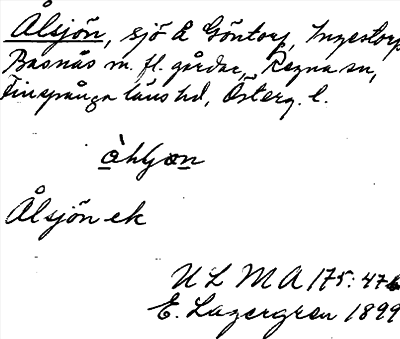 Ålsjön, sjö å Göntorp, Ingestorp
Basnäs m. fl. gårdar, Regna sn,
Finspånga läns hd, Österg. l.
Ålsjön ek
ULMA 175:47
E. Lagergren 1899